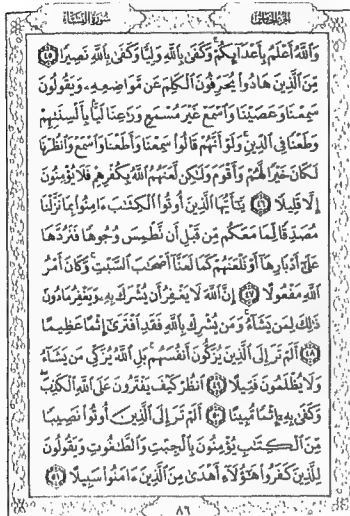 سُورَةُ النِّسَاءِ
الجُزْءُ الخَامِسُ
وَاللَّهُ أَعْلَمُ بِأَعْدَائِكُمْ وَكَفَىٰ بِاللَّهِ وَلِيًّا وَكَفَىٰ بِاللَّهِ نَصِيرًا ٤٥
مِّنَ الَّذِينَ هَادُوا يُحَرِّفُونَ الْكَلِمَ عَن مَّوَاضِعِهِ وَيَقُولُونَ
سَمِعْنَا وَعَصَيْنَا وَاسْمَعْ غَيْرَ مُسْمَعٍ وَرَاعِنَا لَيًّا بِأَلْسِنَتِهِمْ
وَطَعْنًا فِي الدِّينِ وَلَوْ أَنَّهُمْ قَالُوا سَمِعْنَا وَأَطَعْنَا وَاسْمَعْ وَانظُرْنَا
لَكَانَ خَيْرًا لَّهُمْ وَأَقْوَمَ وَلَٰكِن لَّعَنَهُمُ اللَّهُ بِكُفْرِهِمْ فَلَا يُؤْمِنُونَ
إِلَّا قَلِيلًا ٤٦ يَٰأَيُّهَا الَّذِينَ أُوتُوا الْكِتَٰبَ ءَامِنُوا بِمَا نَزَّلْنَا
مُصَدِّقًا لِّمَا مَعَكُم مِّن قَبْلِ أَن نَّطْمِسَ وُجُوهًا فَنَرُدَّهَا
عَلَىٰ أَدْبَارِهَا أَوْ نَلْعَنَهُمْ كَمَا لَعَنَّا أَصْحَٰبَ السَّبْتِ وَكَانَ أَمْرُ
اللَّهِ مَفْعُولًا ٤٧ إِنَّ اللَّهَ لَا يَغْفِرُ أَن يُشْرَكَ بِهِ وَيَغْفِرُ مَا دُونَ
ذَٰلِكَ لِمَن يَشَاءُ وَمَن يُشْرِكْ بِاللَّهِ فَقَدِ افْتَرَىٰ إِثْمًا عَظِيمًا
٤٨ أَلَمْ تَرَ إِلَى الَّذِينَ يُزَكُّونَ أَنفُسَهُم بَلِ اللَّهُ يُزَكِّي مَن يَشَاءُ
وَلَا يُظْلَمُونَ فَتِيلًا ٤٩ انظُرْ كَيْفَ يَفْتَرُونَ عَلَى اللَّهِ الْكَذِبَ
وَكَفَىٰ بِهِ إِثْمًا مُّبِينًا ٥٠ أَلَمْ تَرَ إِلَى الَّذِينَ أُوتُوا نَصِيبًا
مِّنَ الْكِتَٰبِ يُؤْمِنُونَ بِالْجِبْتِ وَالطَّٰغُوتِ وَيَقُولُونَ
لِلَّذِينَ كَفَرُوا هَٰؤُلَاءِ أَهْدَىٰ مِنَ الَّذِينَ ءَامَنُوا سَبِيلًا ٥١
٨٦